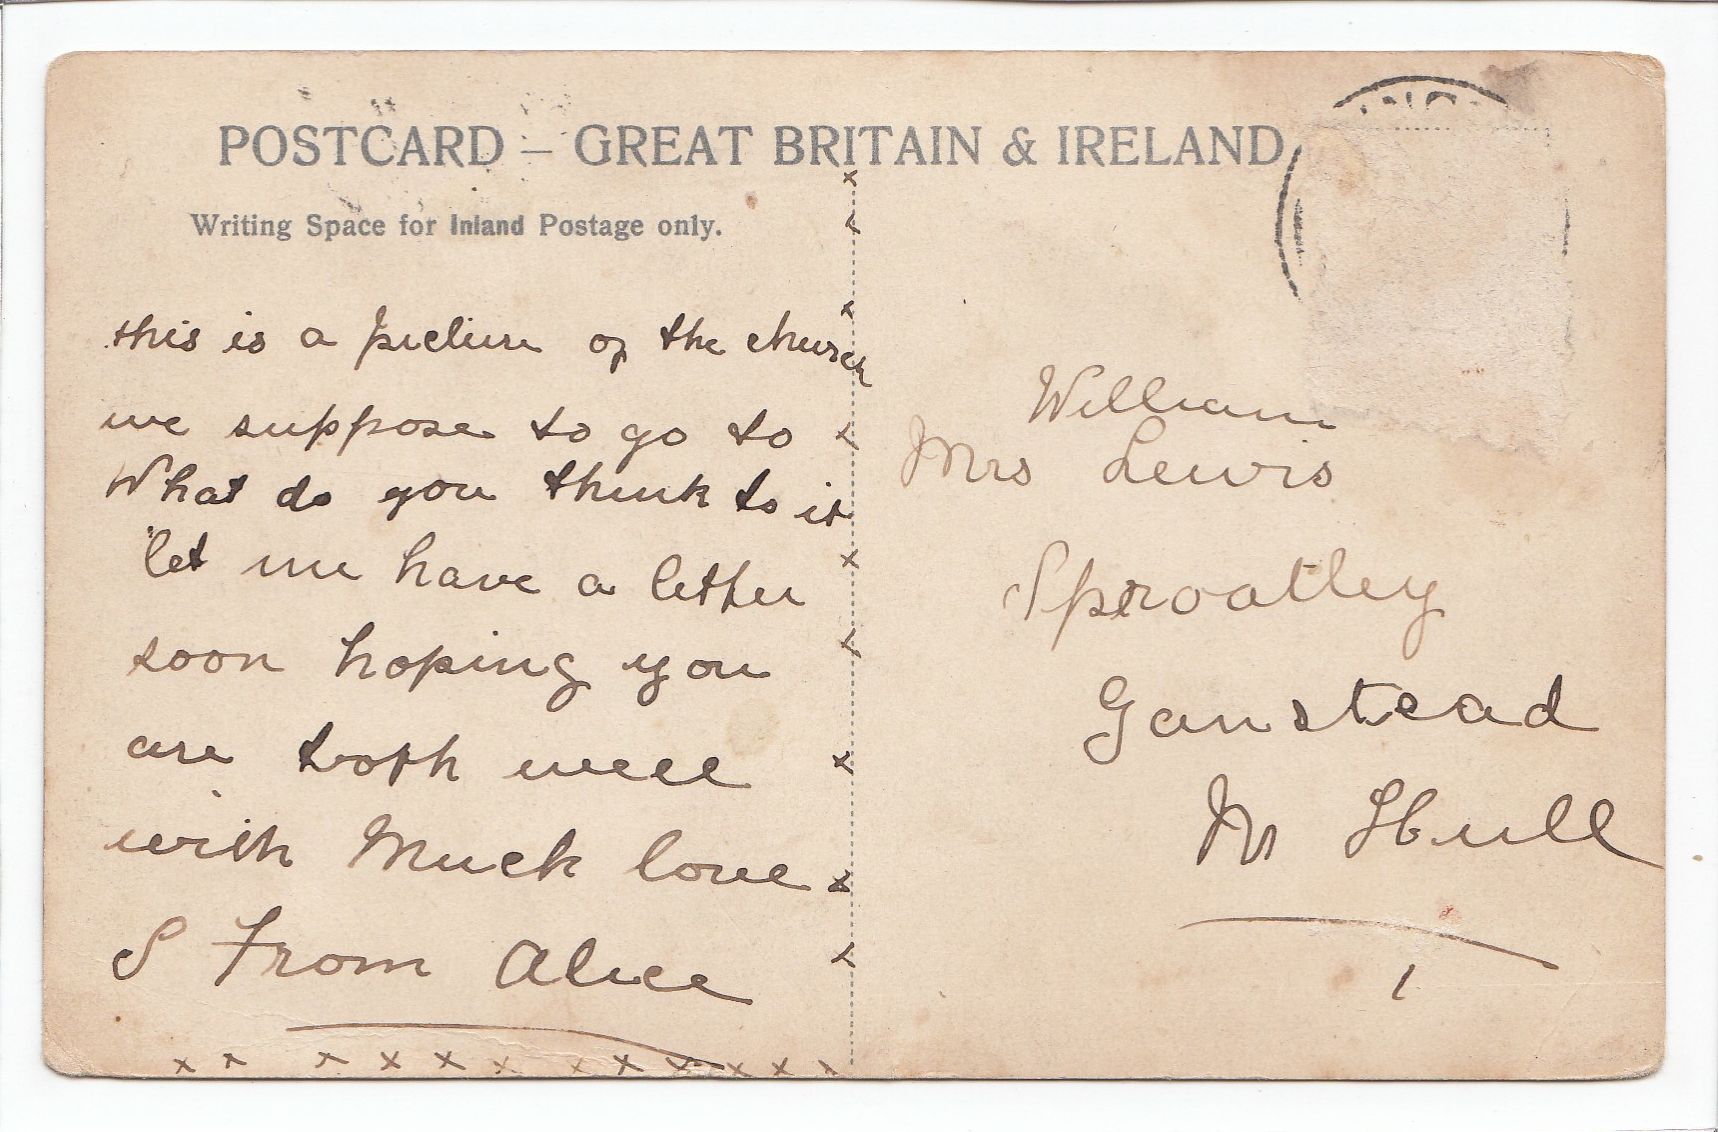 POSTCARD – GREAT BRITAIN & IRELAND
Writing Space for Inland Postage only.
this is a picture of the church
we suppose to go to
What do you think to it
let me have a letter
soon hoping you
are both well
with Much love
S From Alice
x x x x x x x x x x x x
William
Mrs Lewis
Sproatley
Ganstead
Nr Hull